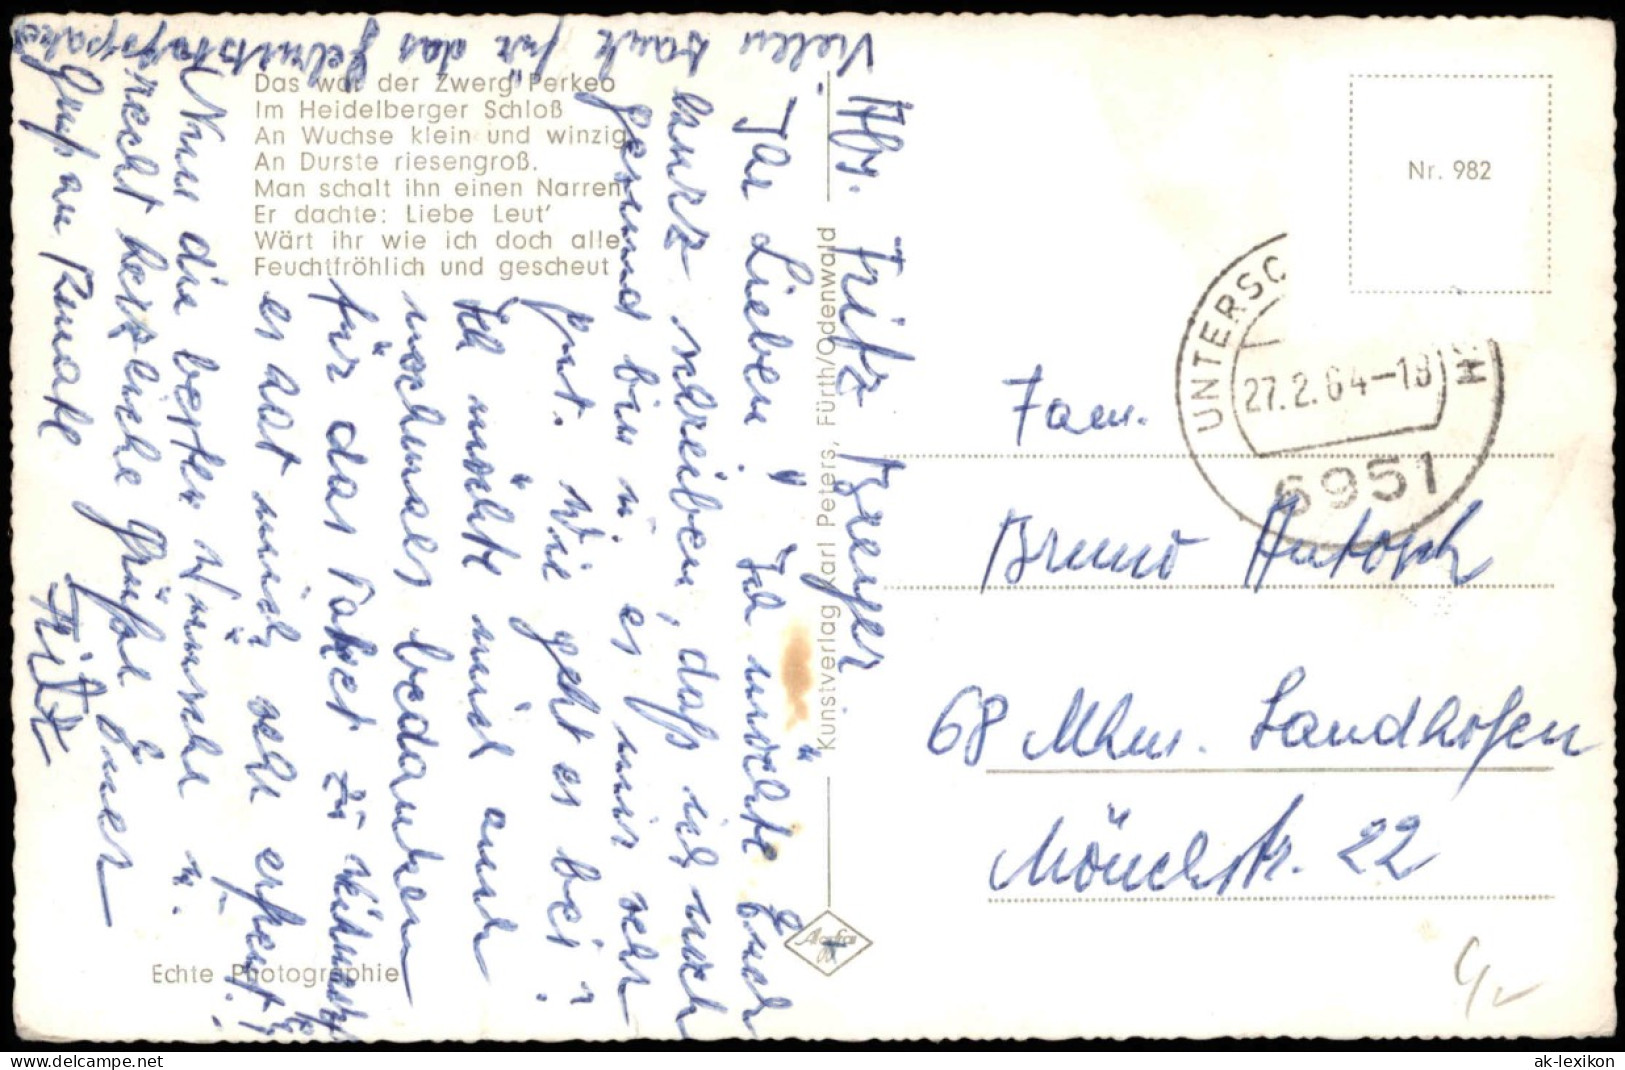 Das war der Zwerg Perkeo
Im Heidelberger Schloß
An Wuchse klein und winzig
An Durste riesengroß.
Man schalt ihn einen Narren
Er dachte: Liebe Leut'
Wärt ihr wie ich doch alle
Feuchtfröhlich und gescheut
Echte Photographie
Kunstverlag Karl Peters, Fürth/Odenwald
Nr. 982
UNTERSC
27.2.64-18
6951
Abs. Fritz
Vielen Dank für das Geburtstagspaket
Ihr Lieben! Ich möchte Euch
kurz schreiben, daß ich noch
gesund bin u. es mir sehr
gut. Wie geht es bei
Ich möchte mich auch
nochmals bedanken
für das Paket zu
es hat mich sehr erfreut!
Nun die besten Wünsche u.
recht herzliche Grüße Euer
Fritz
Gruß an Renate
Fam.
Bruno Antosch
68 Mhm. Sandhofen
Mönchstr. 22
ak-lexikon
www.delcampe.net